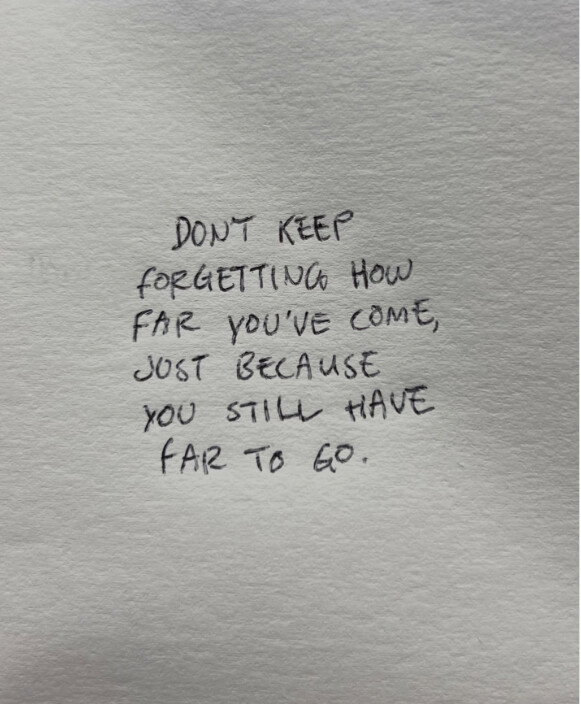 DON'T KEEP
FORGETTING HOW
FAR YOU'VE COME,
JUST BECAUSE
YOU STILL HAVE
FAR TO GO.